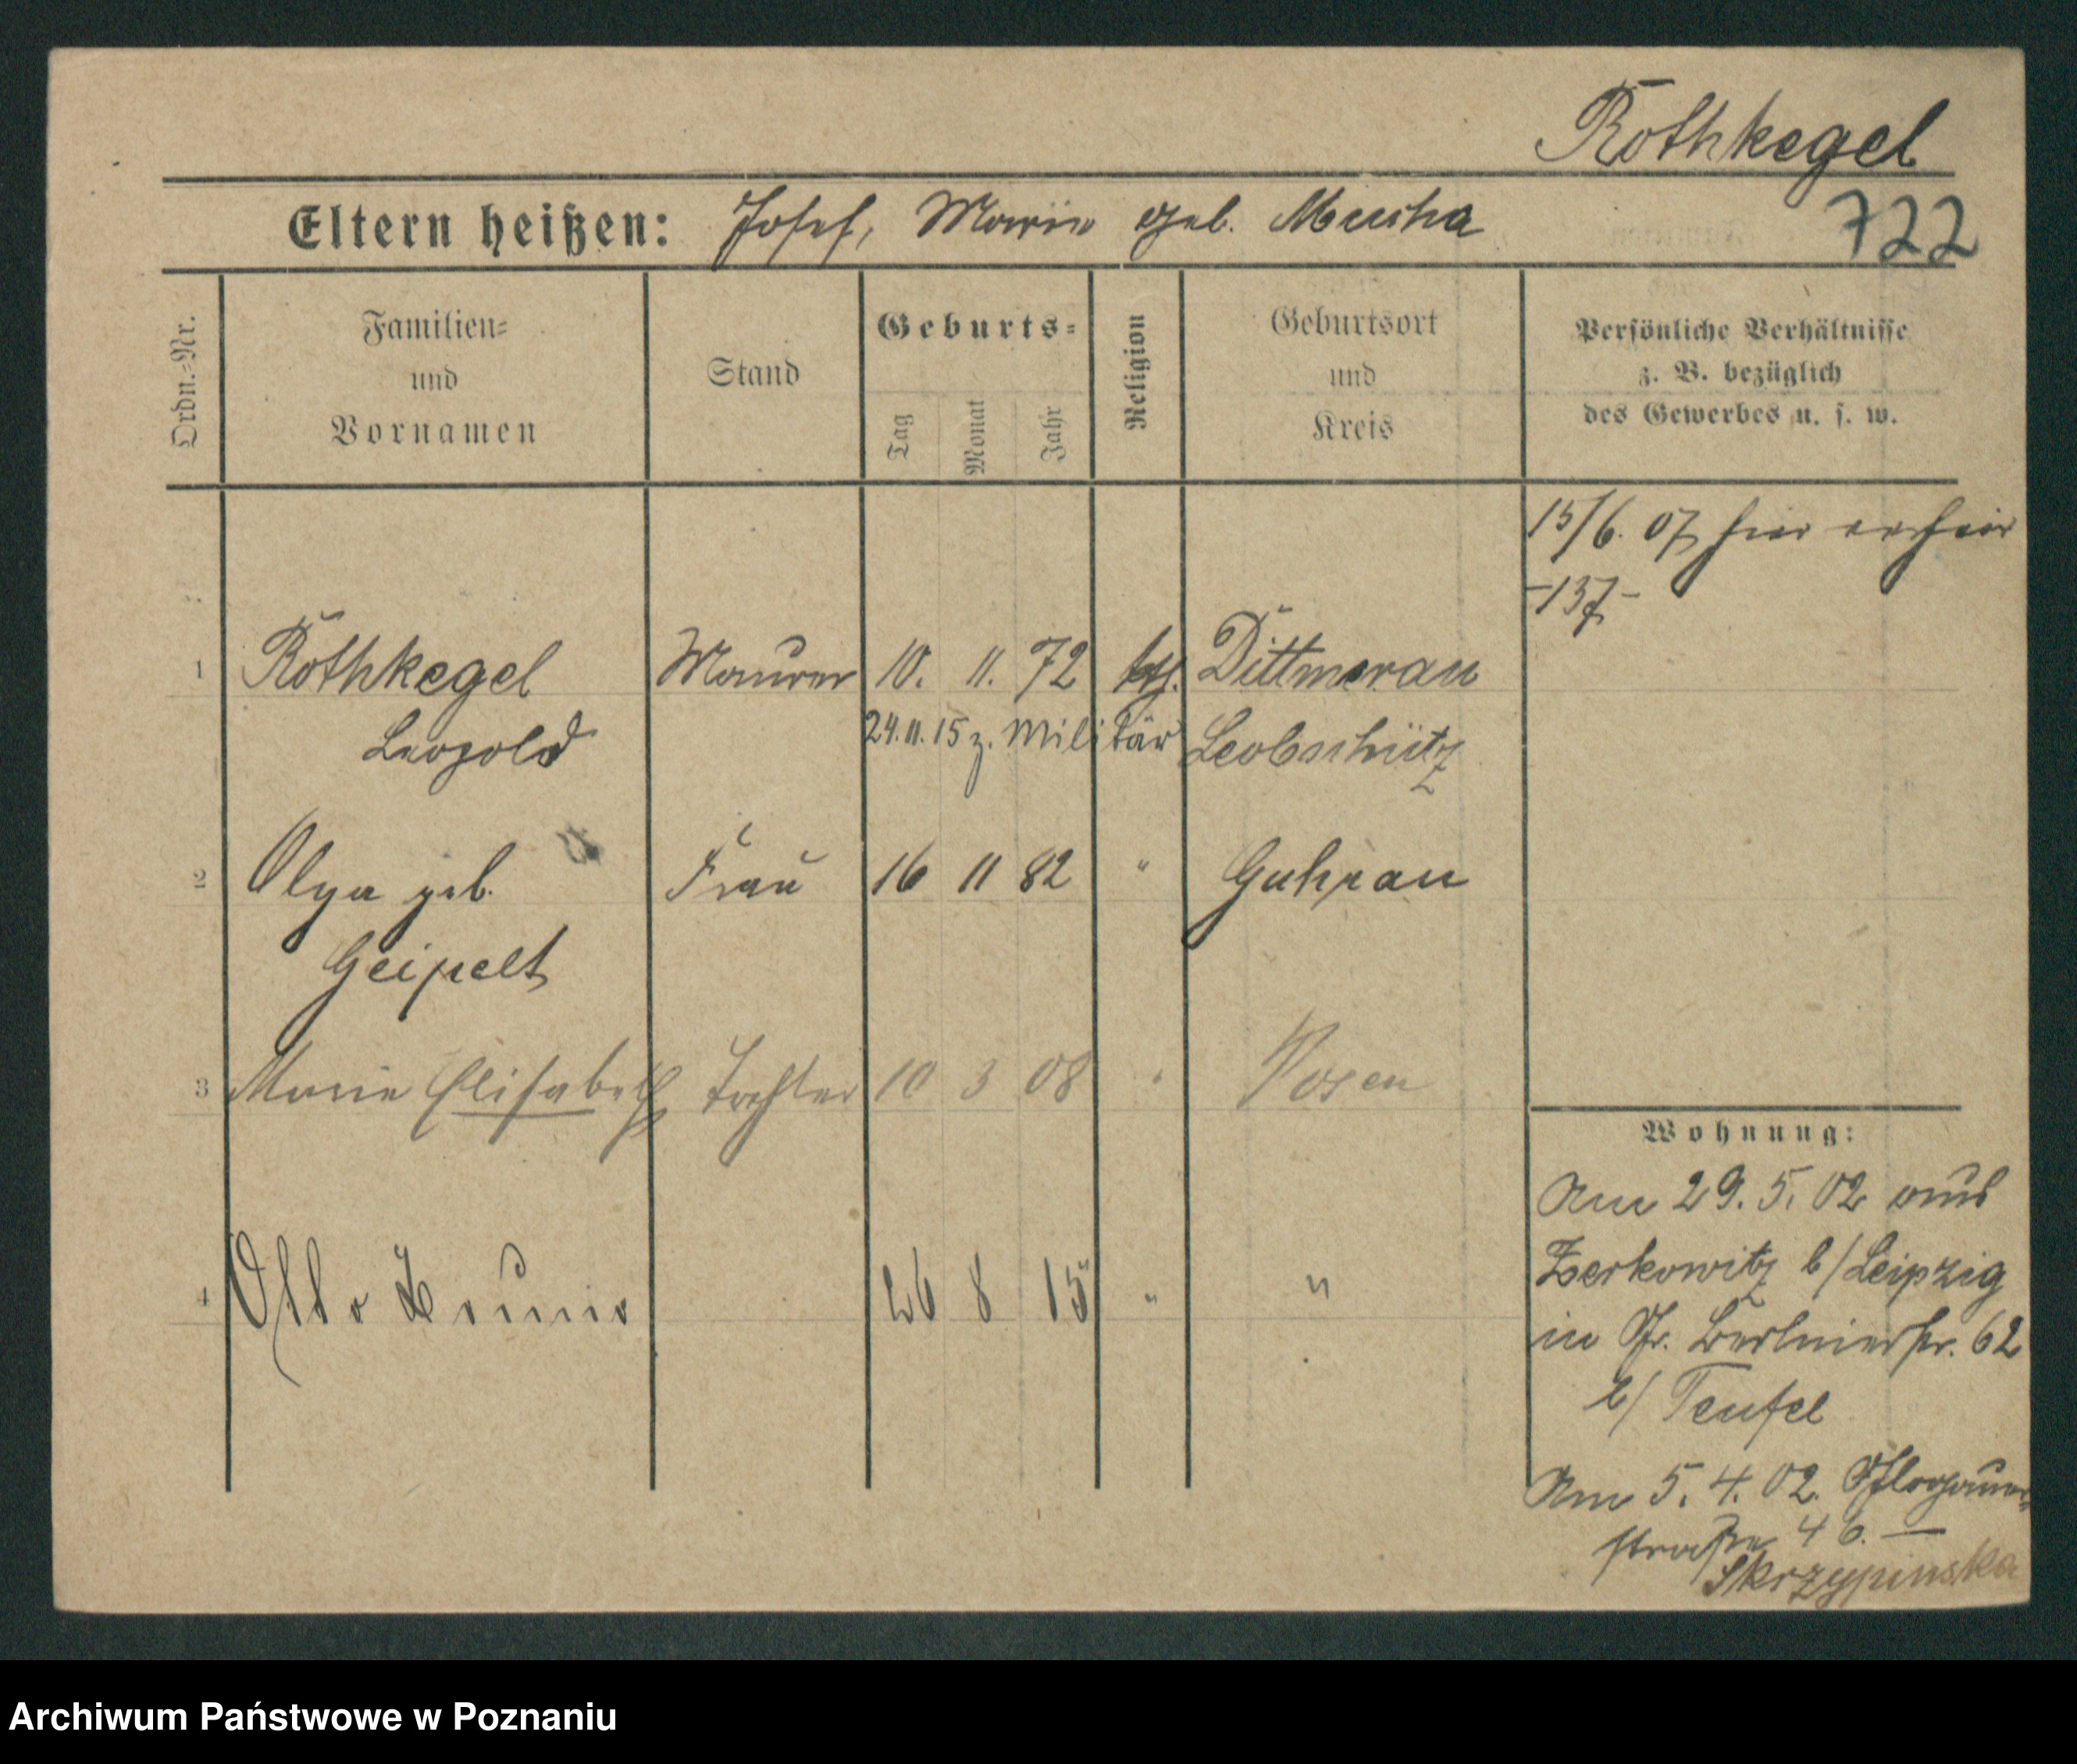 Rothkegel
Eltern heißen: Josef, Marie geb. Mucha
722
Ordn.-Nr.
Familien-
und
Vornamen
Stand
Geburts-
Tag
Monat
Jahr
Religion
Geburtsort
und
Kreis
Persönliche Verhältnisse
z. B. bezüglich
des Gewerbes u. s. w.
15/6. 07 hier
-137-
1 Rothkegel Maurer 10. 11. 72 kth. Dittmerau
Leopold 24.11.15 z. Militär Leobschütz
2 Olga geb. Frau 16 11 82 " Guhrau
Geipelt
3 Marie Elisabeth Tochter 10 3 08 " Posen
4 Otto Bruno 26 8 15 " "
Wohnung:
Am 29. 5. 02 aus
Zserkowitz b/Leipzig
in Gr. Berlinerstr. 62
b/ Teufel
Am 5. 4. 02.
straße 46. —
Skrzypinska
Archiwum Państwowe w Poznaniu